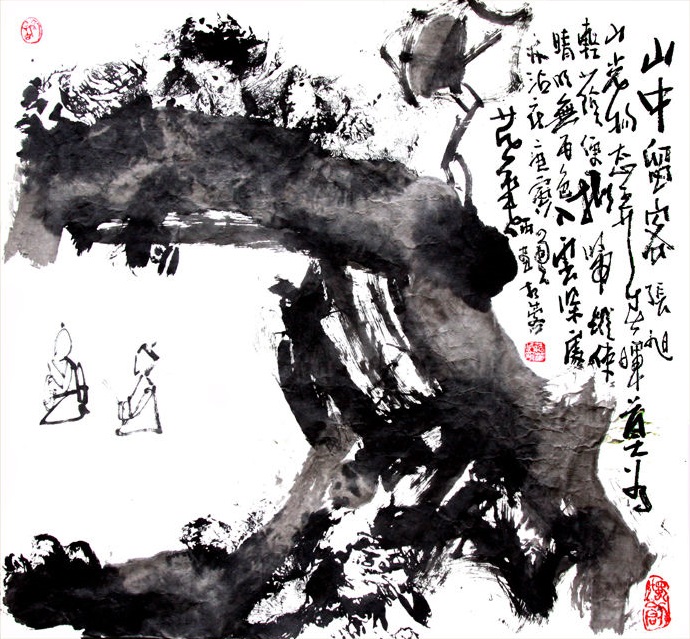 山中留客 張旭
山光物态弄春暉莫为
輕陰便擬歸縱使
晴明無雨色入雲深處
亦沾衣 庚寅